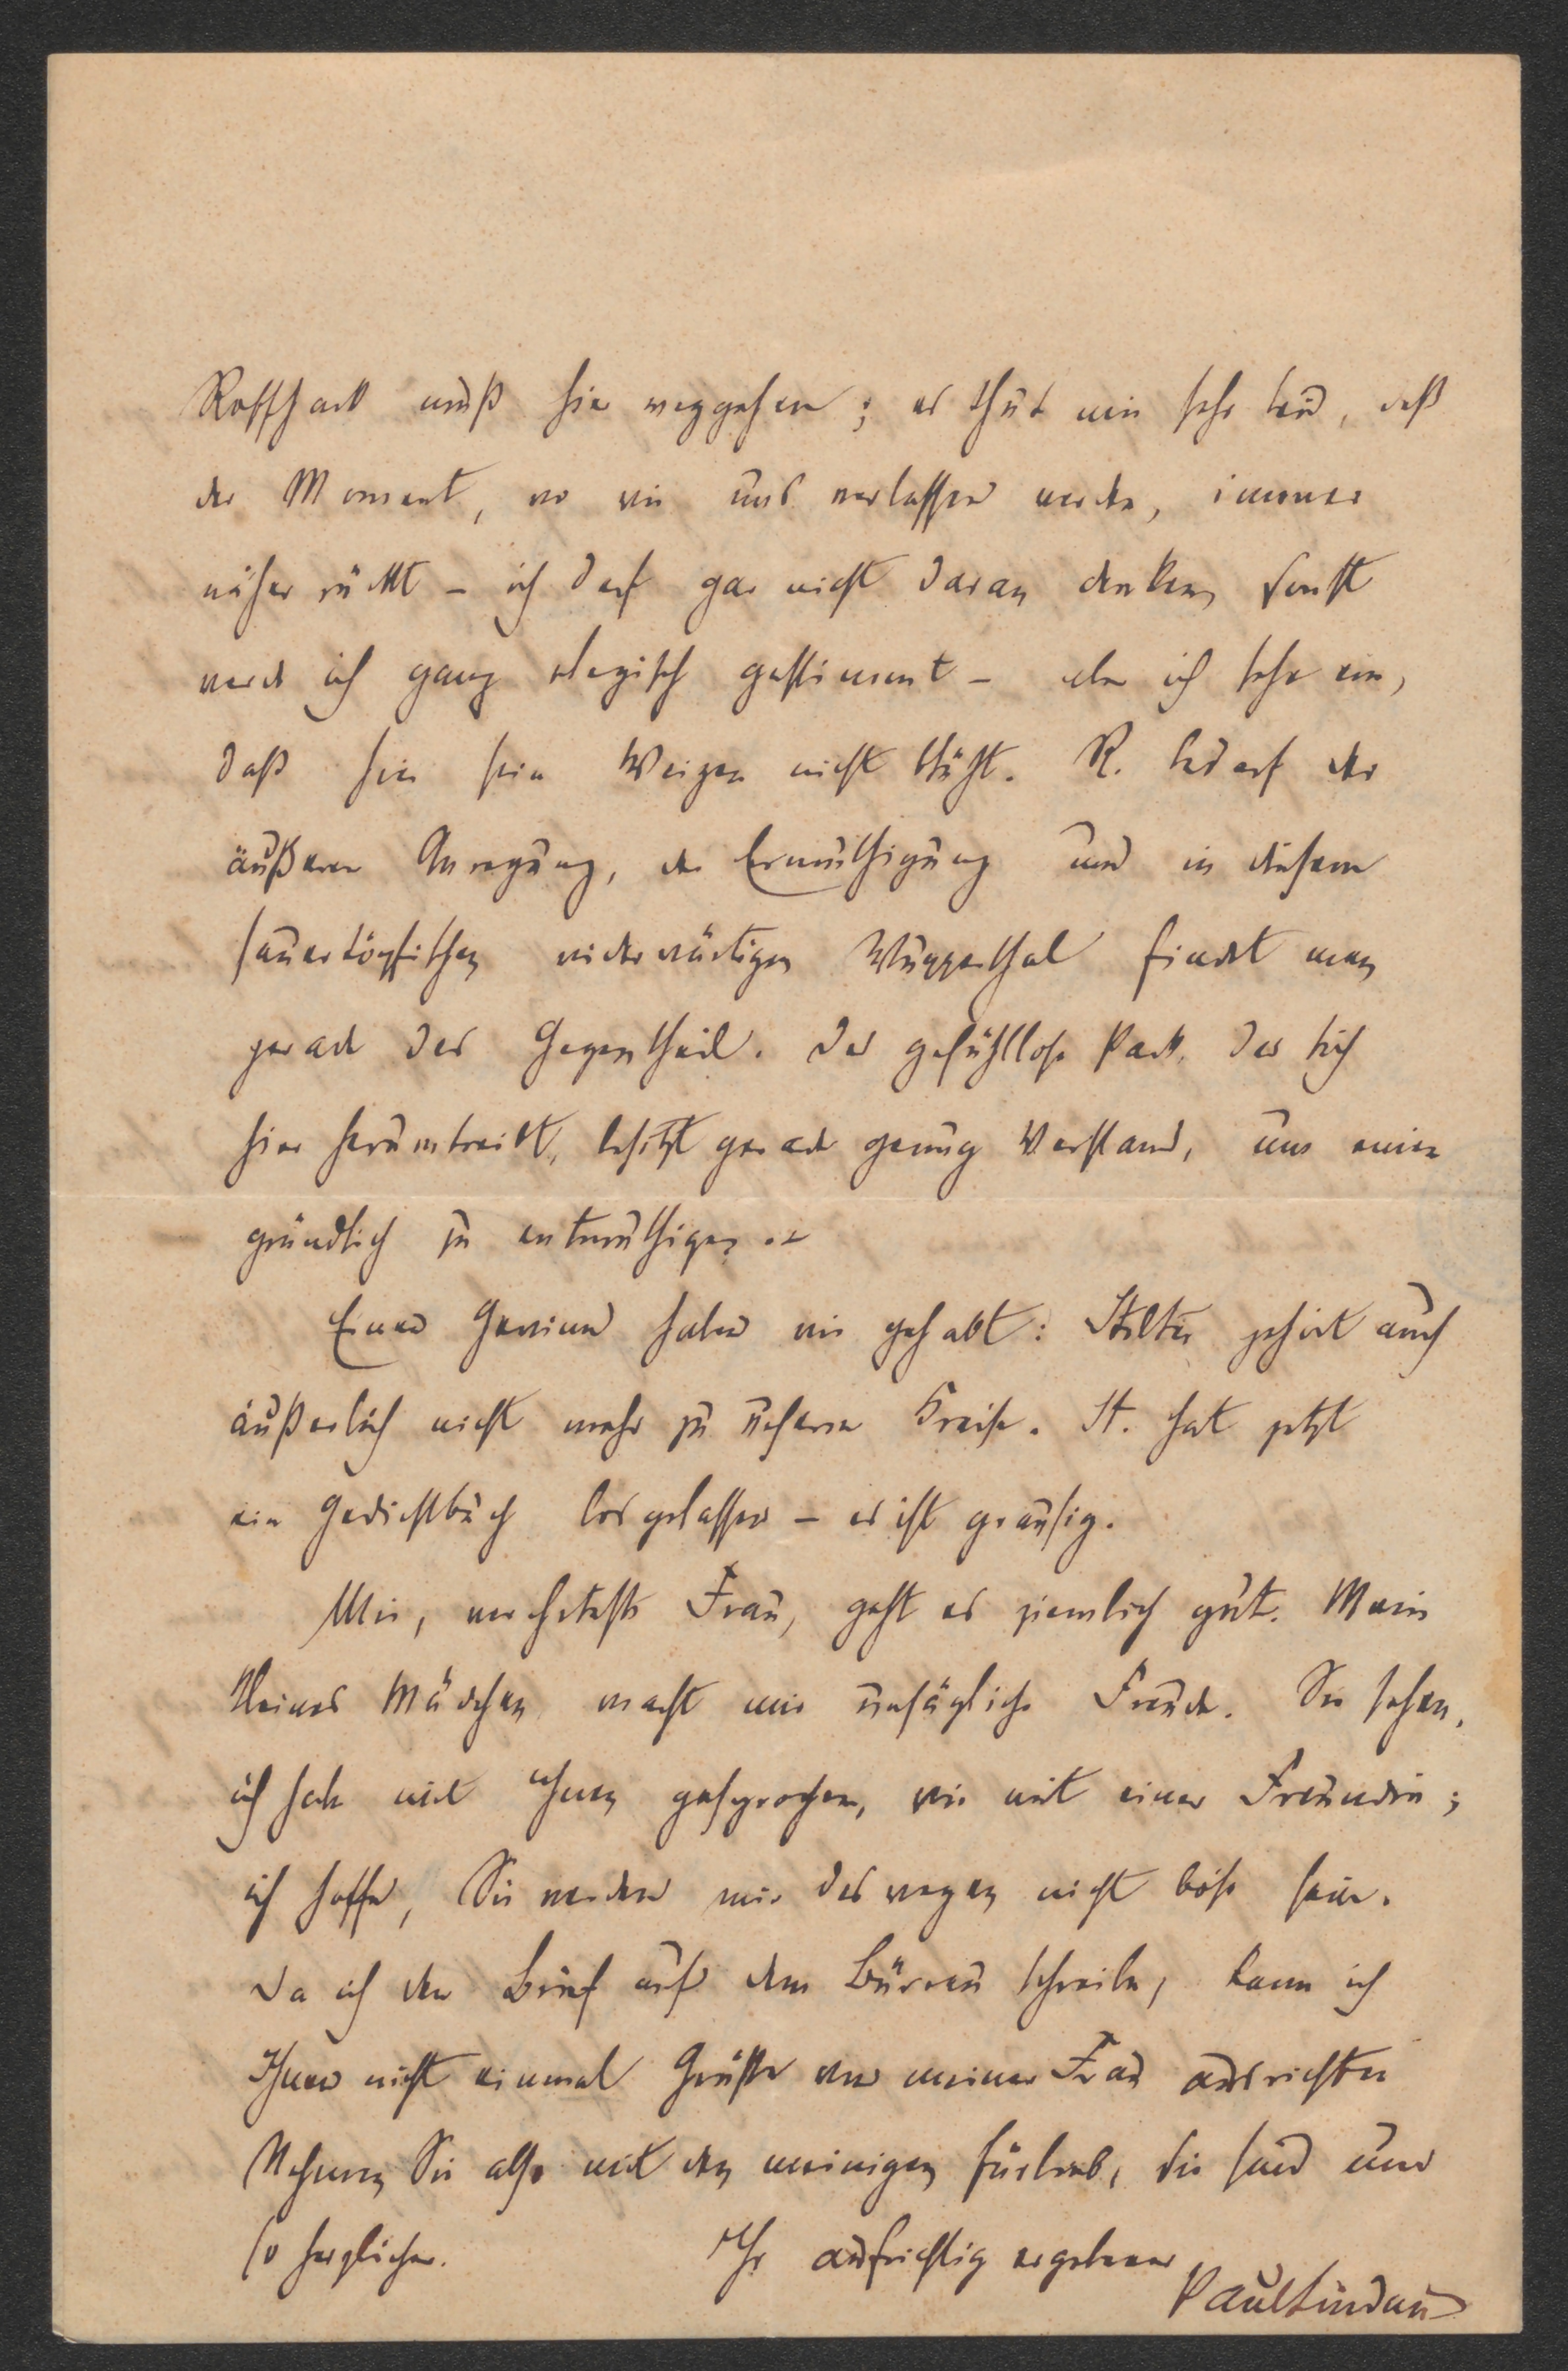 Roffhack muß hier weggehen; es thut mir sehr leid, daß
der Moment, wo wir uns verlassen werden, immer
näher rückt – ich darf gar nicht daran denken, sonst
werde ich ganz elegisch gestimmt – aber ich sehe ein,
daß hier sein Weizen nicht blüht. R. bedarf der
äußeren Anregung, der Ermuthigung und in diesem
sauertöpfischen widerwärtigen Wupperthal findet man
gerade das Gegentheil. Das gefühllose Pack, das sich
hier herumtreibt, besitzt gerade genug Verstand, um einen
gründlich zu entmuthigen. –
Einen Gewinn haben wir gehabt: Stelter gehört auch
äußerlich nicht mehr zu unserem Kreise. St. hat jetzt
ein Gedichtbuch losgelassen – es ist grausig.
Mir, verehrteste Frau, geht es ziemlich gut. Mein
kleines Mädchen macht mir unsägliche Freude. Sie sehen,
ich habe mit Ihnen gesprochen, wie mit einer Freundin;
ich hoffe, Sie werden mir deswegen nicht böse sein.
Da ich den Brief auf dem Büreau schreibe, kann ich
Ihnen nicht einmal Grüße von meiner Frau ausrichten
Nehmen Sie also mit den meinigen fürlieb, sie sind um
so herzlicher. Ihr aufrichtig ergebener
Paul Lindau